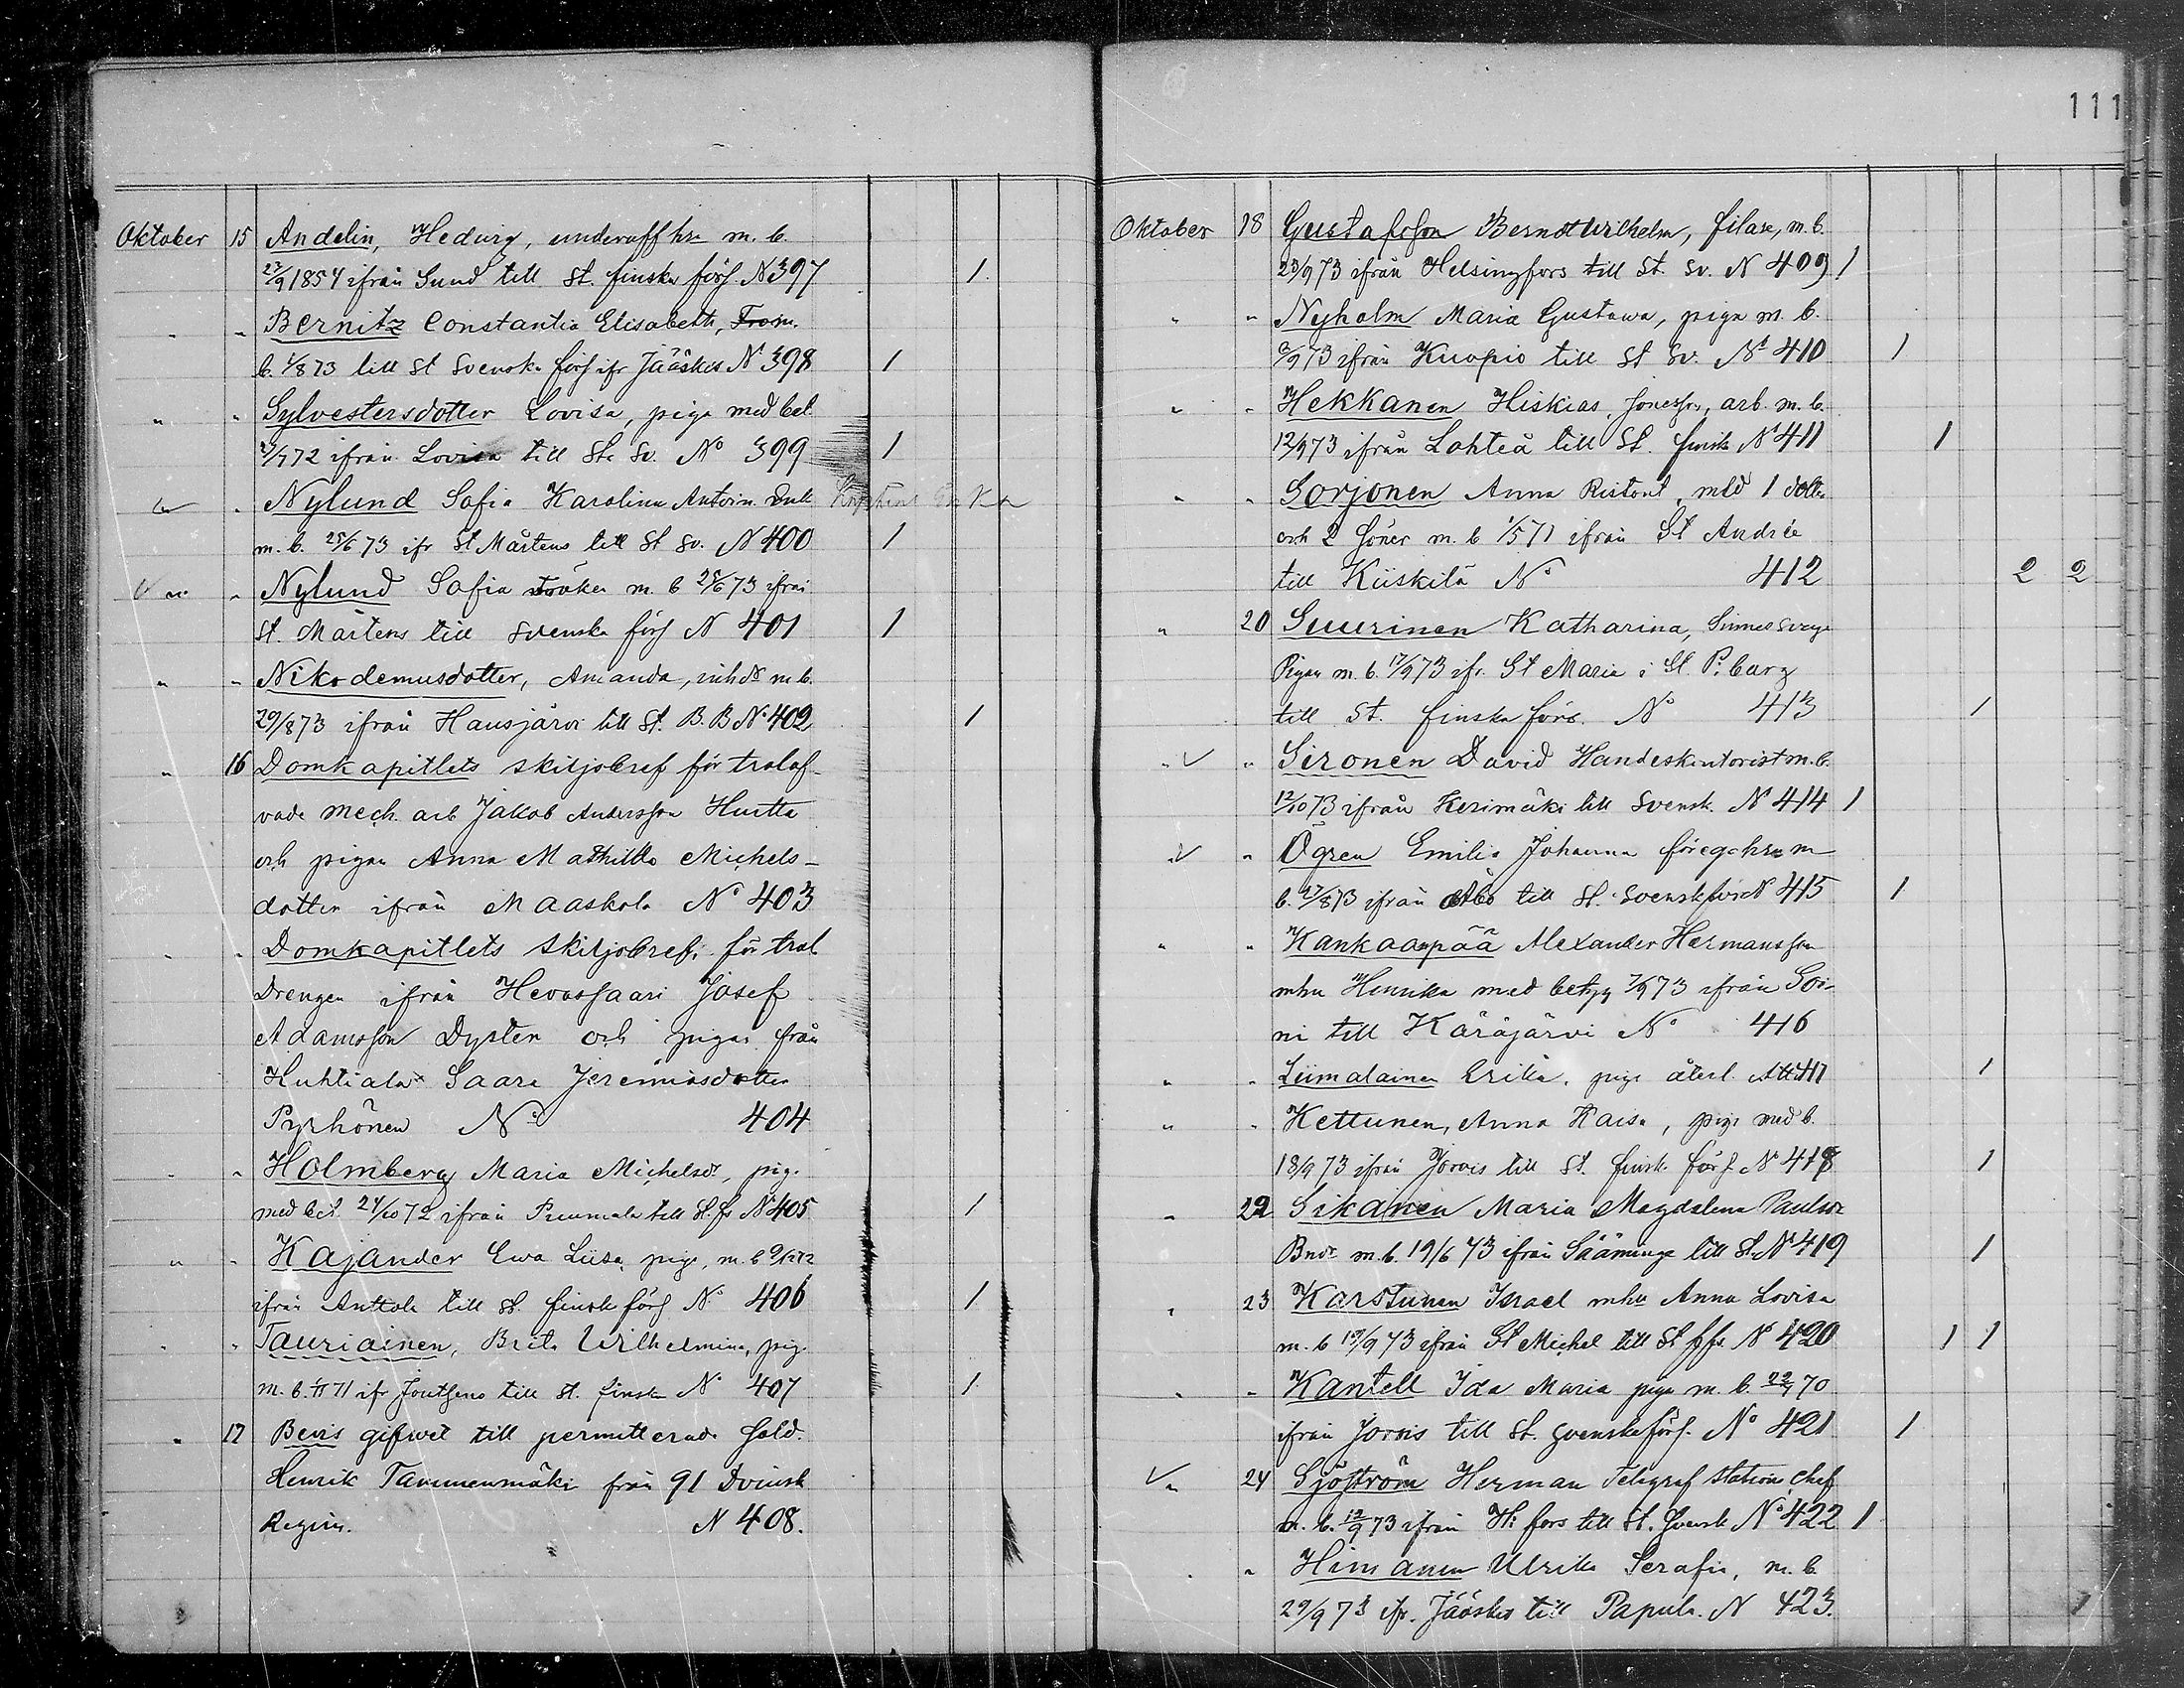 111
Oktober 15 Andelin, Hedvig, underoff hr m. b.
23/9 1854 ifrån Sund till St. finska förs. N 397 1
" " Bernitz Constantia Elisabeth,
b. 1/8 73 till St Svenska förs ifr Jääskis N 398 1
" " Sylvestersdotter Lovisa, piga med bet.
72 ifrån Lovisa till St. Sv. No 399 1
" Nylund Sofia Karolina Antoin. Dutt
m. b. 25/6 73 ifr St Mårtens till St Sv. N 400 1
" " Nylund Sofia m. b 25/6 73 ifrån
St. Mårtens till Svenska förs N 401 1
" " Nikodemusdotter, Amanda, inhdr m b.
29/8 73 ifrån Hausjärvi till St. B. B No 402 1
" 16 Domkapitlets skiljobref för trolof-
vade mech. arb Jakob Andersson Hurtta
och pigan Anna Mathilda Michels-
dotter ifrån Maaskola No 403
" " Domkapitlets skiljobref för trol.
Drengen ifrån Hevossaari Josef
Adamsson Dysten och pigan från
Huhtiala Saara Jeremiasdotter
Pyrhönen No 404
" " Holmberg Maria Michelsdr, pig.
med bet. 24/10 72 ifrån Puumala till St. fs No 405 1
" " Kajander Ewa Liisa, piga, m. b 9/12 72
ifrån Anttola till St. finska förs No 406 1
" " Tauriainen, Brita Wilhelmina, pig.
m. b. 71 ifr Joutseno till St. finska No 407 1
" 17 Bevis gifvet till permitterade Sold.
Henrik Tammenmäki från 91 Dvinsk
Regim. N 408.
Oktober 18 Gustafsson Berndt Wilhelm, filare, m. b.
23/9 73 ifrån Helsingfors till St. Sv. N 409 1
" " Nyholm Maria Gustava, piga m. b.
73 ifrån Kuopio till St Sv. No 410 1
" " Hekkanen Hiskias Jonesson, arb. m. b.
12/9 73 ifrån Lohteå till St. finsk No 411 1
" " Sorjonen Anna Ristont, med 1 dotter
och 2 söner m. b 1/5 71 ifrån St Andrée
till Kiiskilä No 412 2 2
" 20 Suurinen Katharina, Sinnessvaga
Pigan m. b. 17/9 73 ifr. St Maria i St. P:burg
till St. finska förs. No 413 1
" " Sironen David Handelskontorist m. b.
12/10 73 ifrån Kerimäki till Svensk. No 414 1
" " Ögren Emilia Johanna m
b. 27/8 73 ifrån Åbo till St. Svensk förs N 415 1
" " Kankaanpää Alexander Hermansson
mhu Henrika med betyg 7/9 73 ifrån Soi-
ni till Käräjärvi No 416
" " Liimalainen Erika, piga återl. Att. 417 1
" " Kettunen, Anna Kaisa, piga med b.
18/9 73 ifrån Jorois till St. finsk. förs. No 418 1
" 22 Sikainen Maria Magdalena Paulsdr
Bndr m. b. 19/6 73 ifrån Sääminge till St. No 419 1
" 23 Karstunen Israel mhu Anna Lovisa
m. b 19/9 73 ifrån St Michel till St ffs. No 420 1 1
" " Kantell Ida Maria piga m. b. 70
ifrån Jorois till St. Svenska förs. No 421 1
" 24 Sjöström Herman Telegraf station chef
m. b. 12/9 73 ifrån H:fors till St. Svensk No 422 1
" " Himanen Ulrika Serafia, m. b.
29/9 73 ifr. Jääskis till Papula. N 423.